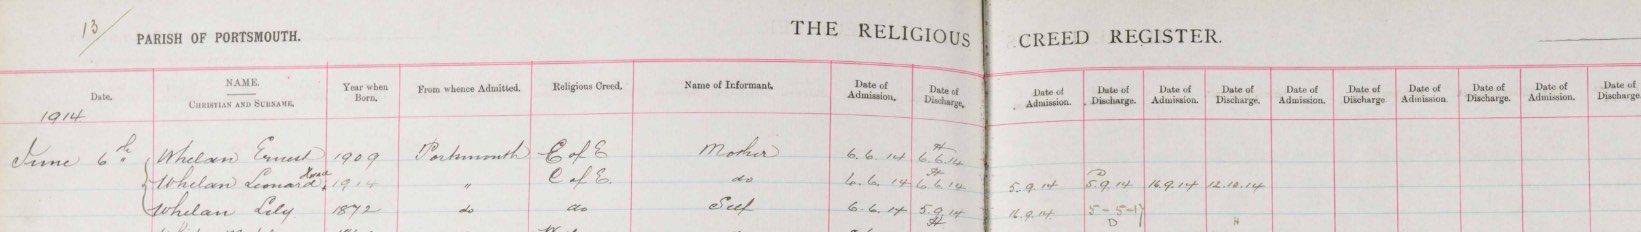 13/
PARISH OF PORTSMOUTH. THE RELIGIOUS CREED REGISTER.
Date. NAME. CHRISTIAN AND SURNAME. Year when Born. From whence Admitted. Religious Creed. Name of Informant. Date of Admission. Date of Discharge. Date of Admission. Date of Discharge. Date of Admission. Date of Discharge. Date of Admission. Date of Discharge. Date of Admission. Date of Discharge. Date of Admission. Date of Discharge.
1914
June 6th Whelan Ernest 1909 Portsmouth C of E Mother 6.6.14 H 6.6.14
Whelan Leonard Horace 1914 " C of E. do 6.6.14 H 6.6.14 5.9.14 D 5.9.14 16.9.14 12.10.14
Whelan Lily 1872 do do Self 6.6.14 5.9.14 H 16.9.14 5-5-17 D H